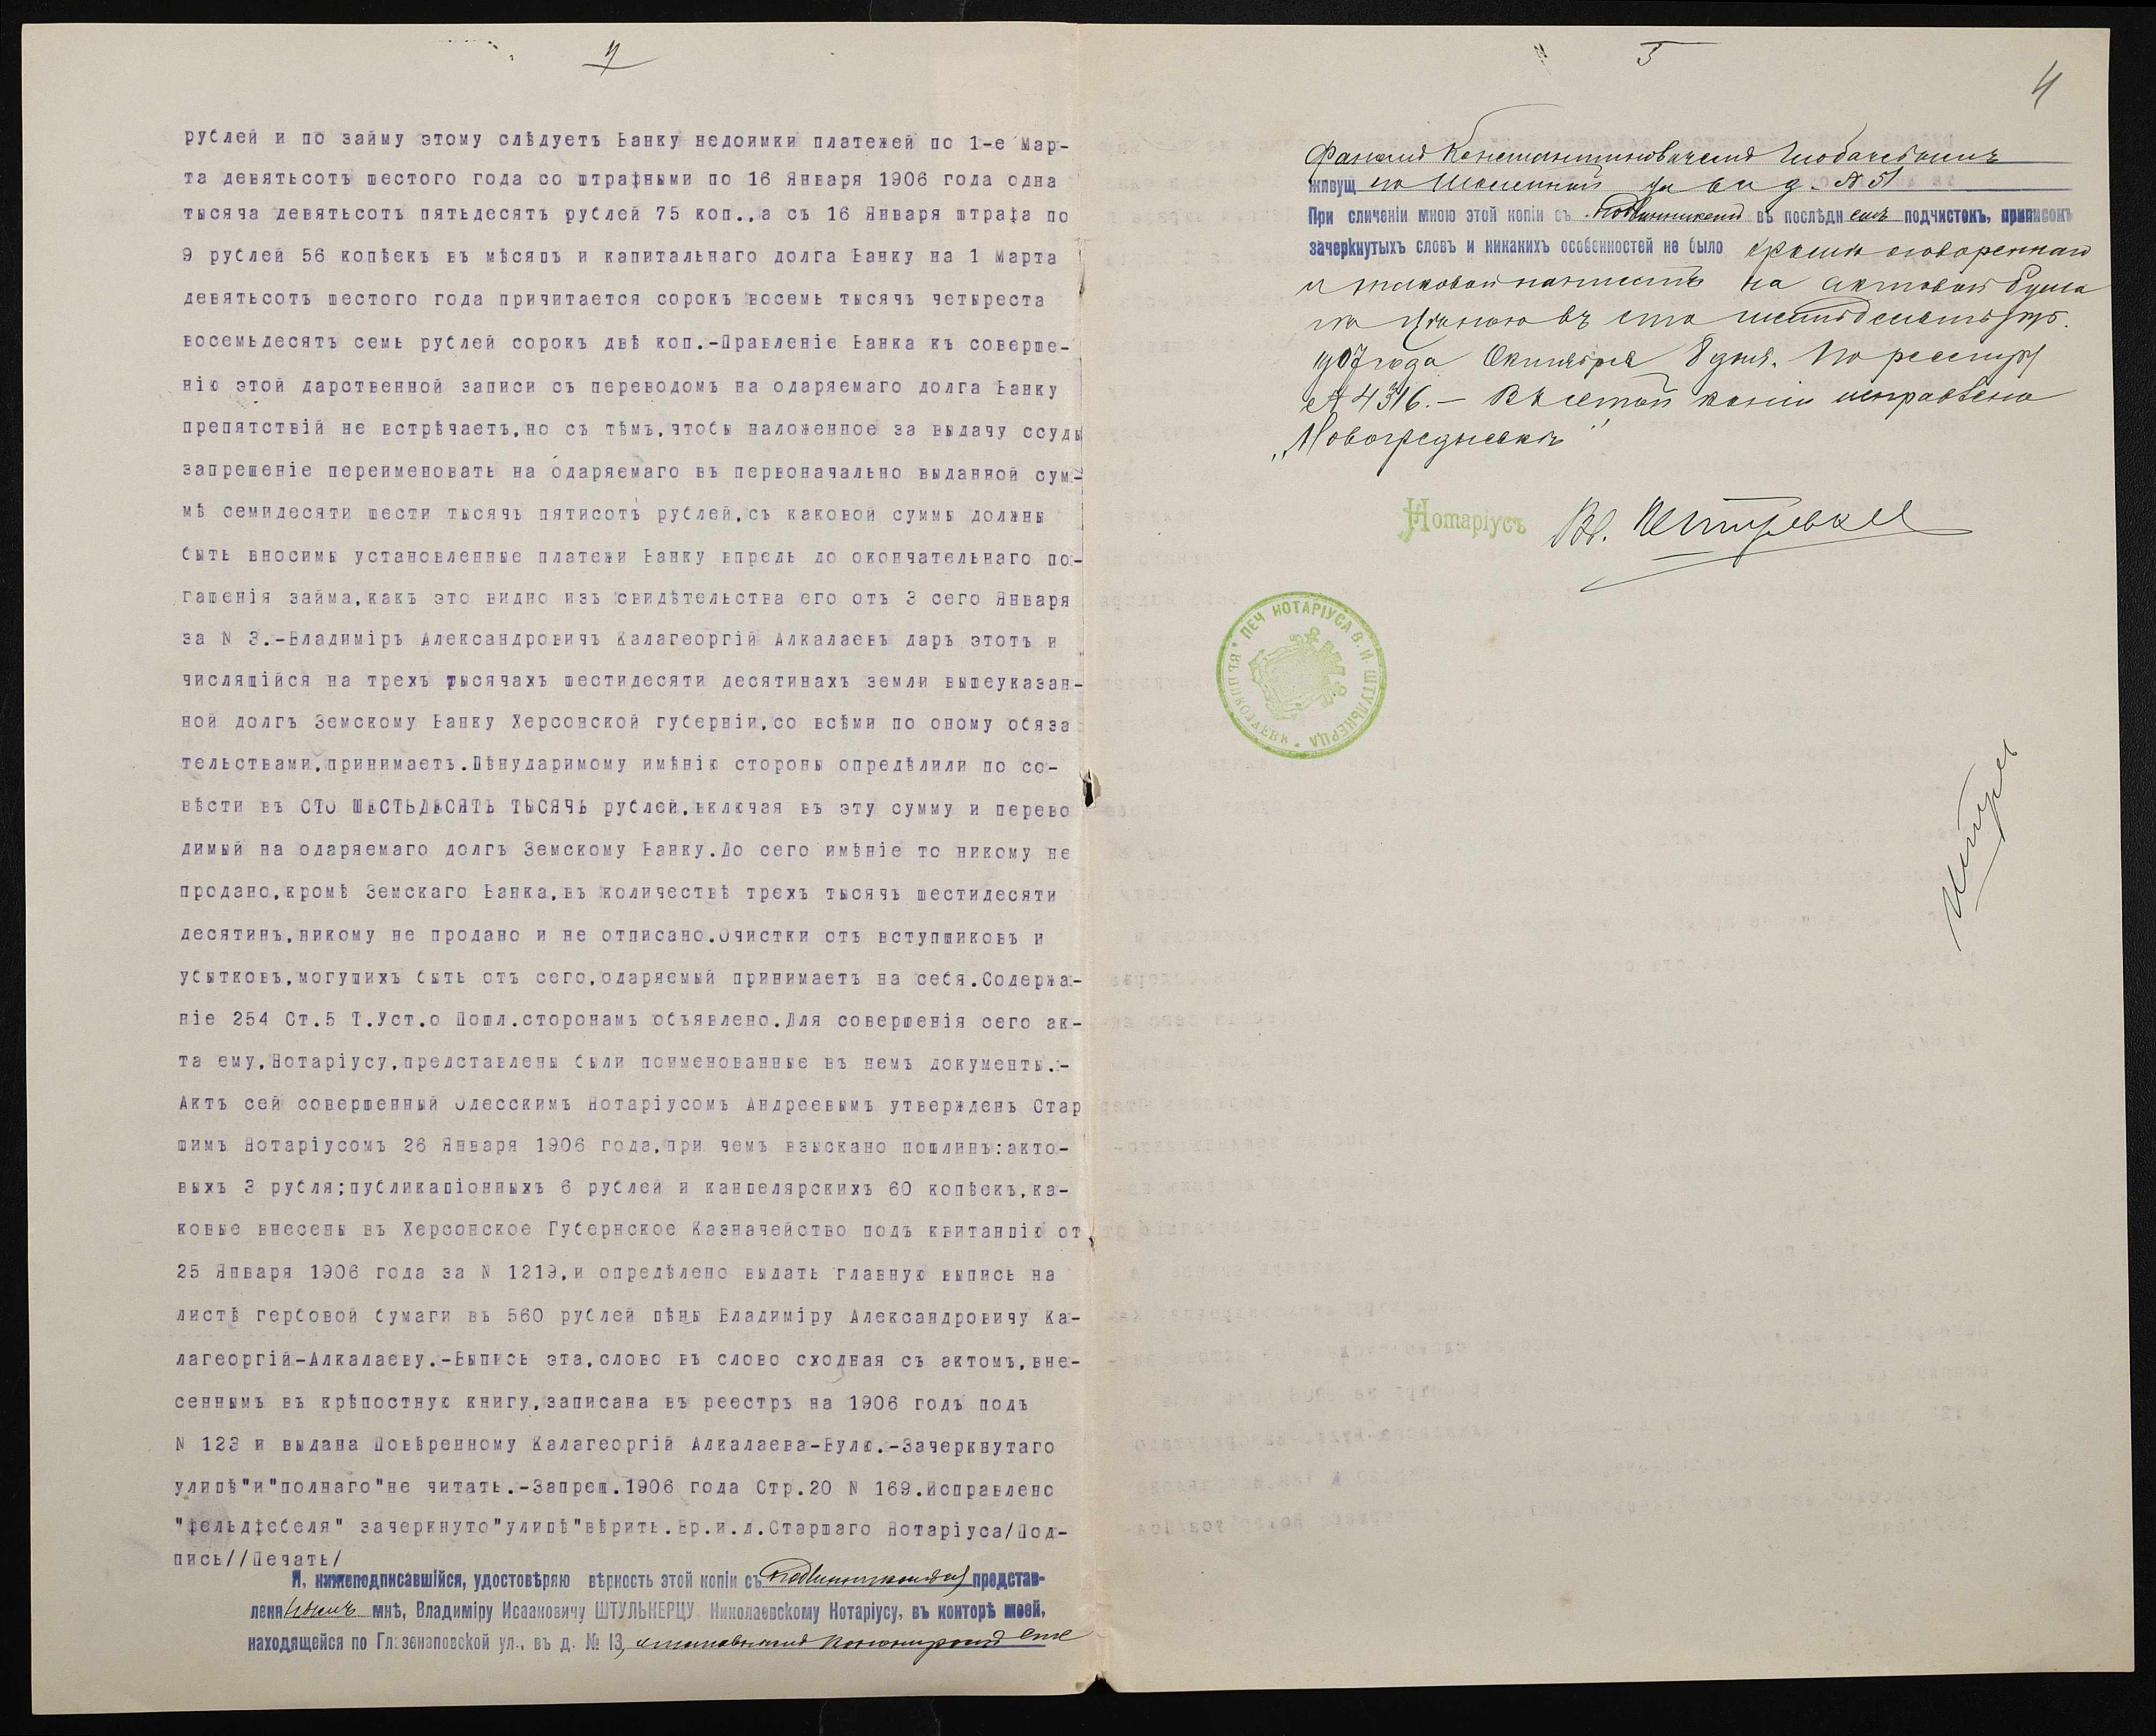 4
рублей и по займу этому слѣдуетъ Банку недоимки платежей по 1-е Мар-
та девятьсотъ шестого года со штрафными по 16 Января 1906 года одна
тысяча девятьсотъ пятьдесятъ рублей 75 коп.,а съ 16 Января штрафа по
9 рублей 56 копѣекъ въ мѣсяцъ и капитальнаго долга Банку на 1 Марта
девятьсотъ шестого года причитается сорокъ восемь тысячъ четыреста
восемьдесятъ семь рублей сорокъ двѣ коп.-Правленіе Банка къ соверше-
нію этой дарственной записи съ переводомъ на одаряемаго долга Банку
препятствій не встрѣчаетъ,но съ тѣмъ,чтобы наложенное за выдачу ссуды
запрещеніе переименовать на одаряемаго въ первоначально выданной сум-
мѣ семидесяти шести тысячъ пятисотъ рублей,съ каковой суммы должны
быть вносимы установленные платежи Банку впредь до окончательнаго по-
гашенія займа,какъ это видно изъ свидѣтельства его отъ 3 сего Января
за N 3.-Владиміръ Александровичъ Калагеоргій Алкалаевъ даръ этотъ и
числящійся на трехъ тысячахъ шестидесяти десятинахъ земли вышеуказан-
ной долгъ Земскому Банку Херсонской губерніи,со всѣми по оному обяза
тельствами,принимаетъ.Цѣнударимому имѣнію стороны опредѣлили по со-
вѣсти въ СТО ШЕСТЬДЕСЯТЪ ТЫСЯЧЪ рублей,включая въ эту сумму и перево
димый на одаряемаго долгъ Земскому Банку.До сего имѣніе то никому не
продано,кромѣ Земскаго Банка,въ количествѣ трехъ тысячъ шестидесяти
десятинъ,никому не продано и не отписано.Очистки отъ вступщиковъ и
убытковъ,могущихъ быть отъ сего,одаряемый принимаетъ на себя.Содержа-
ніе 254 Ст.5 Т.Уст.о Пошл.сторонамъ объявлено.Для совершенія сего ак-
та ему,Нотаріусу,представлены были поименованные въ немъ документы.-
Актъ сей совершенный Одесскимъ Нотаріусомъ Андреевымъ утвержденъ Стар
шимъ Нотаріусомъ 26 Января 1906 года,при чемъ взыскано пошлинъ:акто-
выхъ 3 рубля;публикаціонныхъ 6 рублей и канцелярскихъ 60 копѣекъ,ка-
ковые внесены въ Херсонское Губернское Казначейство подъ квитанцію от
25 Января 1906 года за N 1219,и опредѣлено выдать главную выпись на
листѣ гербовой бумаги въ 560 рублей цѣны Владиміру Александровичу Ка-
лагеоргій-Алкалаеву.-Выпись эта,слово въ слово сходная съ актомъ,вне-
сеннымъ въ крѣпостную книгу,записана въ реестръ на 1906 годъ подъ
N 123 и выдана Повѣренному Калагеоргій Алкалаева-Булю.-Зачеркнутаго
улицѣ"и"полнаго"не читать.-Запрещ.1906 года Стр.20 N 169.Исправлено
"фельдфебеля" зачеркнуто"улицѣ"вѣрить.Вр.и.д.Старшаго Нотаріуса/Под-
пись//Печать/
Я, нижеподписавшійся, удостовѣряю вѣрность этой копіи съ подлинникомъ представ-
лен мнѣ, Владиміру Исааковичу ШТУЛЬКЕРЦУ, Николаевскому Нотаріусу, въ конторѣ моей,
находящейся по Глазенаповской ул., въ д. № 13,
5
4
Константиновичемъ
живущ по въ д. № 51
При сличеніи мною этой копіи съ подлинникомъ въ послѣднемъ подчистокъ, приписокъ
зачеркнутыхъ словъ и никакихъ особенностей не было кромѣ оговореннаго
и на актовой бума
гѣ цѣною въ пятьдесятъ р.
1907 года Октября 8 дня. По реестру
№ 4316.— В копіи исправлено
Нотаріусъ Вл. Штулькерц
ПЕЧ НОТАРІУСА В. И. ШТУЛЬКЕРЦА * ВЪ Г. НИКОЛАЕВѢ *